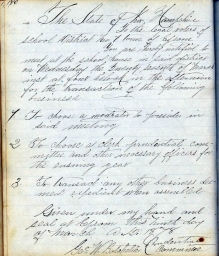 The State of New Hampshire
To the legal voters of
school District No 3 town of Epsom
You are hereby notified to
meet at the school house in said District
on Wednesday the twentieth day of March
inst at four o'clock in the afternoon
for the transaction of the following
business
1 To choose a moderator to preside in
said meeting
2 To choose a clerk prudential com-
mittee and other necessary officers for
the ensuing year
3 To transact any other business de-
med expedient when assembled
Given under my hand and
seal at Epsom this day of
March A.D. 1878
Geo. W. Batchelder Prudential
Committee